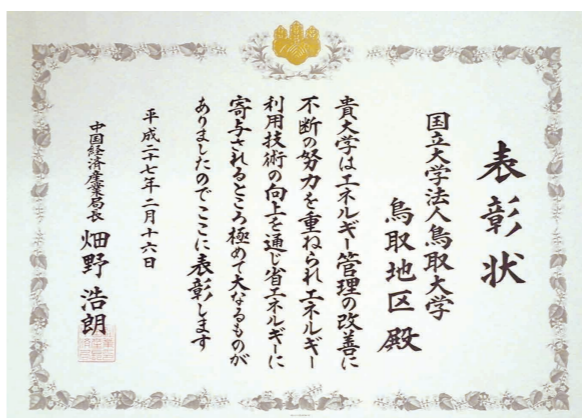 表彰状
国立大学法人鳥取大学
鳥取地区 殿
貴大学はエネルギー管理の改善に
不断の努力を重ねられエネルギー
利用技術の向上を通じ省エネルギーに
寄与されるところ極めて大なるものが
ありましたのでここに表彰します
平成二十七年二月十六日
中国経済産業局長 畑野 浩朗